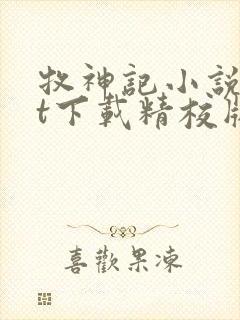 牧神記小說
t下載精校版
喜歡果凍